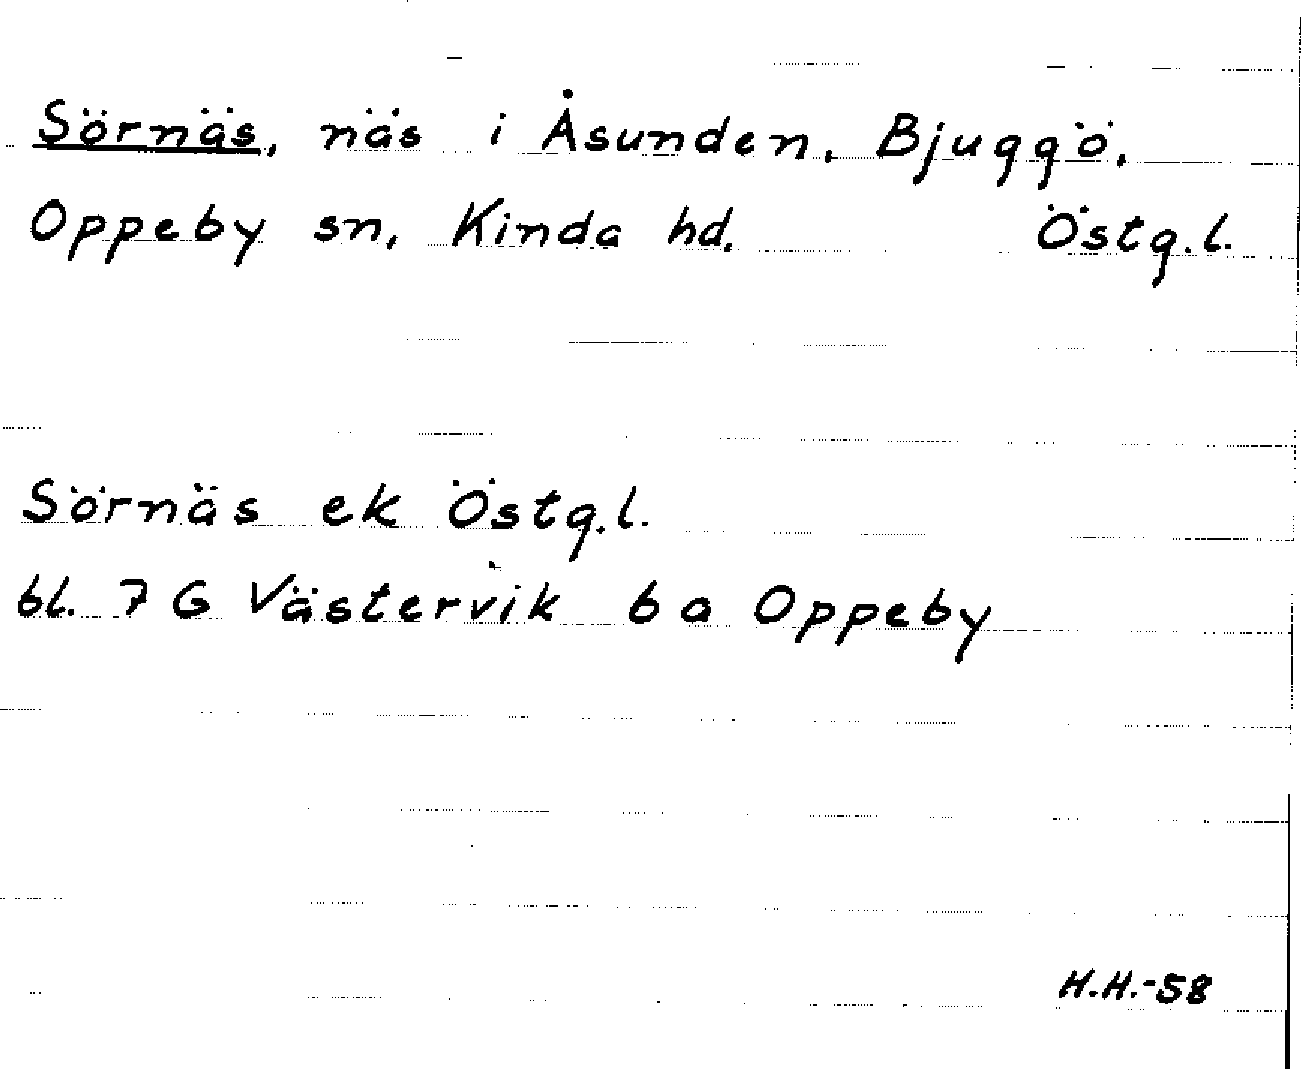 Sörnäs, näs i Åsunden, Bjuggö,
Oppeby sn, Kinda hd. Östg.l.
Sörnäs ek Östg.l.
bl. 7 G Västervik 6 a Oppeby
H.H.-58